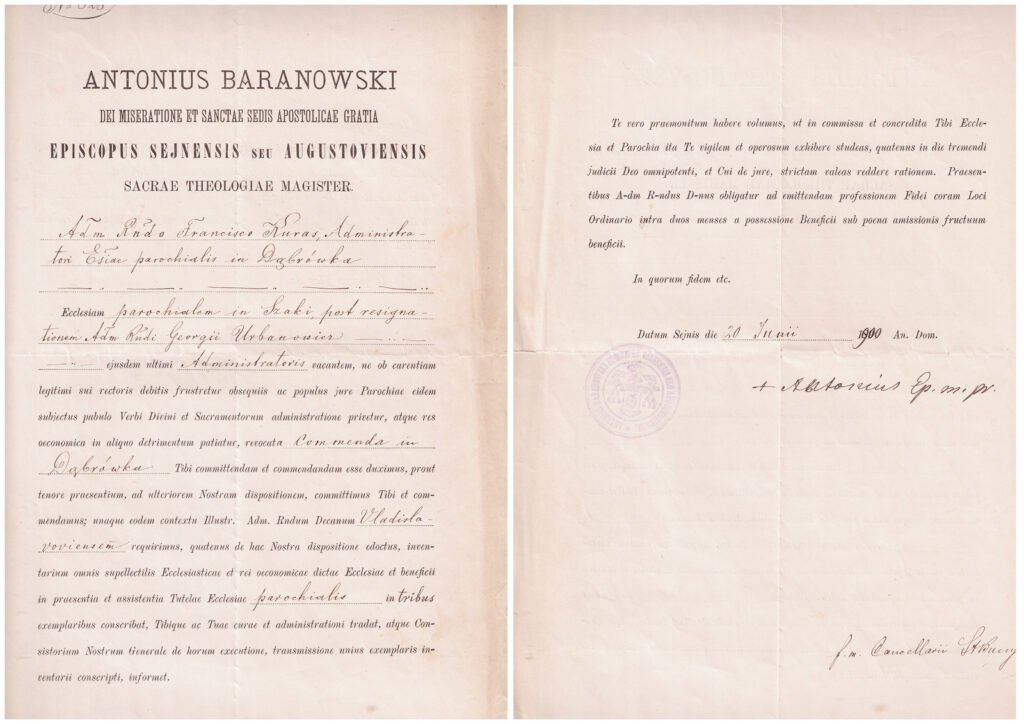 ANTONIUS BARANOWSKI
DEI MISERATIONE ET SANCTAE SEDIS APOSTOLICAE GRATIA
EPISCOPUS SEJNENSIS SEU AUGUSTOVIENSIS
SACRAE THEOLOGIAE MAGISTER.
Adm Rndo Francisco Kuras, Administra-
tori Eccliae parochialis in Dąbrówka
Ecclesiam parochialem in Szaki, post resigna-
tionem Adm Rndi Georgii Urbanowicz
ejusdem ultimi Administratoris vacantem, ne ob carentiam
legitimi sui rectoris debitis frustretur obsequiis ac populus jure Parochiae eidem
subjectus pabulo Verbi Divini et Sacramentorum administratione privetur, atque res
oeconomica in aliquo detrimentum patiatur, revocata Commenda in
Dąbrówka Tibi committendam et commendandam esse duximus, prout
tenore praesentium, ad ulteriorem Nostram dispositionem, committimus Tibi et com-
mendamus; unaque eodem contextu Illustr. Adm. Rndum Decanum Vladisla-
voviensem requirimus, quatenus de hac Nostra dispositione edoctus, inven-
tarium omnis supellectilis Ecclesiasticae et rei oeconomicae dictae Ecclesiae et beneficii
in praesentia et assistentia Tutelae Ecclesiae parochialis in tribus
exemplaribus conscribat, Tibique ac Tuae curae et administrationi tradat, atque Con-
sistorium Nostrum Generale de horum executione, transmissione unius exemplaris in-
ventarii conscripti, informet.
Te vero praemonitum habere volumus, ut in commissa et concredita Tibi Eccle-
sia et Parochia ita Te vigilem et operosum exhibere studeas, quatenus in die tremendi
judicii Deo omnipotenti, et Cui de jure, strictam valeas reddere rationem. Praesen-
tibus A-dm R-ndus D-nus obligatur ad emittendam professionem Fidei coram Loci
Ordinario intra duos menses a possessione Beneficii sub poena amissionis fructuum
beneficii.
In quorum fidem etc.
Datum Sejnis die 20 Junii 1900 An. Dom.
+ Antonius Ep. m. pr.
f. m. Cancellarii